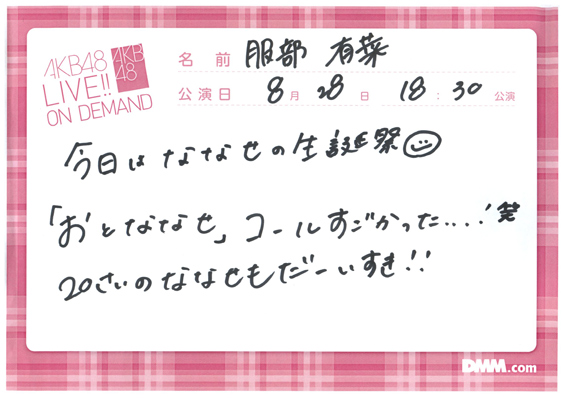 AKB48
LIVE!!
ON DEMAND
AKB
48
名前 服部 有菜
公演日 8月28日 18:30公演
今日はななせの生誕祭
「おとななせ」コールすごかった....!笑
20さいのななせもだーいすき!!
DMM.com